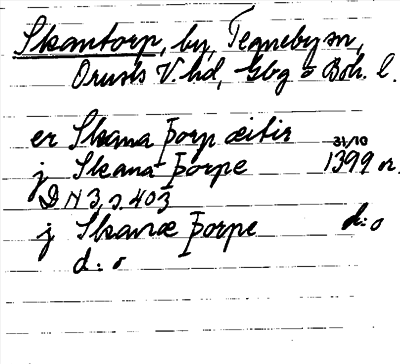 Skantorp, by, Tegneby sn,
Orusts V. hd, Gbg o Boh. l.
er Skana Þorp æitir 31/10
j Skana Þorpe 1399 or.
DN 3, s. 403
j Skanæ Þorpe d:o
d:o